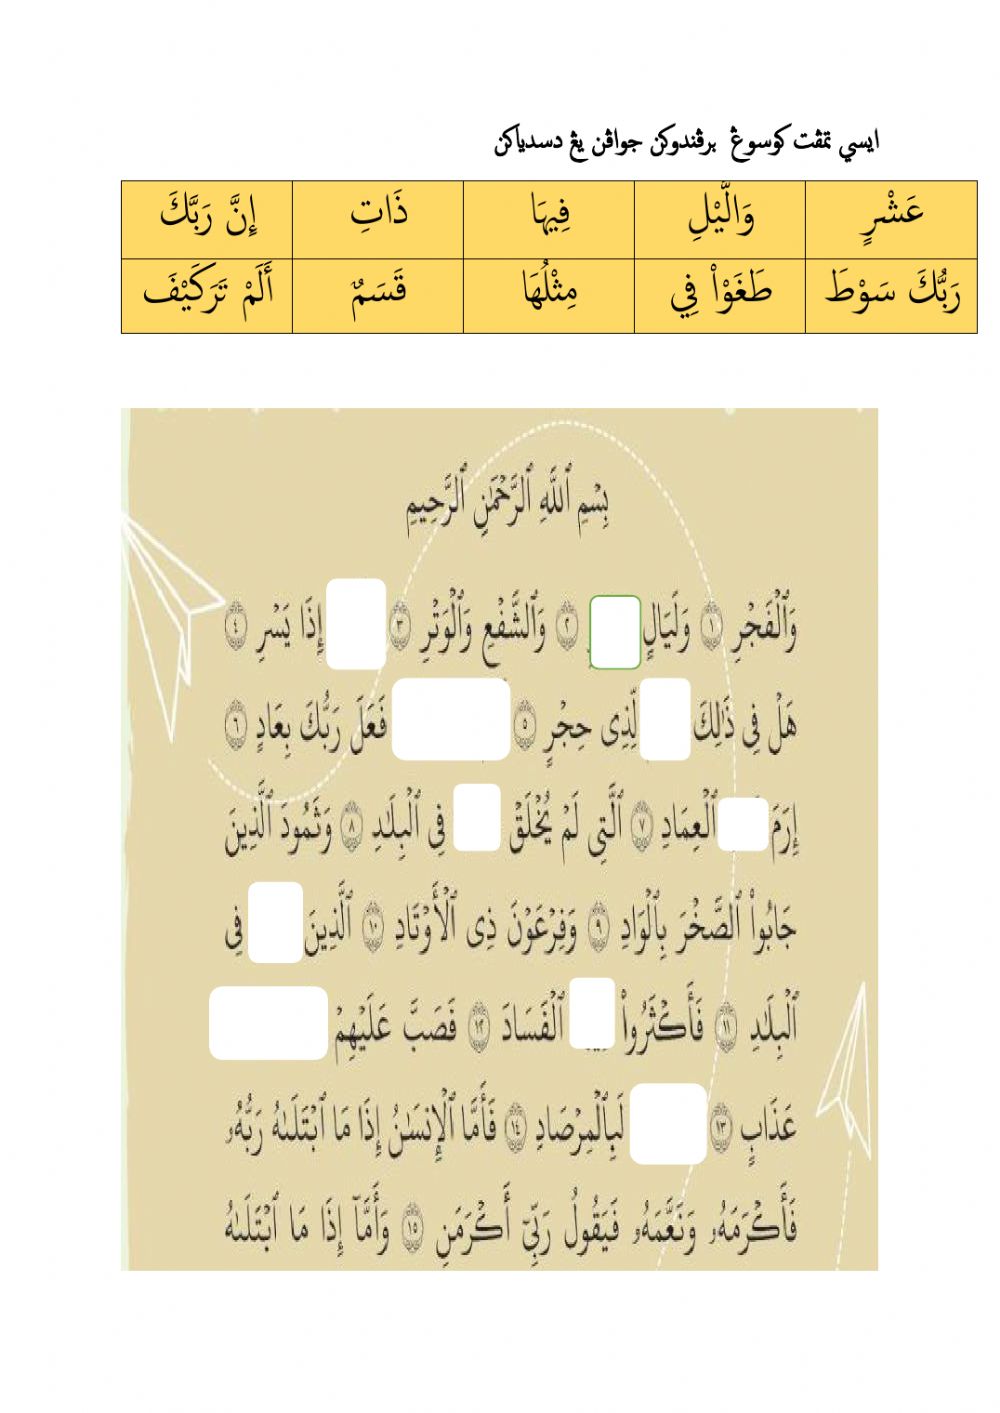 ايسي تمڤت كوسوڠ برڤندوكن جواڤن يڠ دسدياكن
عَشْرٍ وَالَّيْلِ فِيهَا ذَاتِ إِنَّ رَبَّكَ
رَبُّكَ سَوْطَ طَغَوْاْ فِي مِثْلُهَا قَسَمٌ أَلَمْ تَرَكَيْفَ
بِسْمِ ٱللَّهِ ٱلرَّحْمَٰنِ ٱلرَّحِيمِ
وَٱلْفَجْرِ ١ وَلَيَالٍ ٢ وَٱلشَّفْعِ وَٱلْوَتْرِ ٣ إِذَا يَسْرِ ٤
هَلْ فِى ذَٰلِكَ لِّذِى حِجْرٍ ٥ فَعَلَ رَبُّكَ بِعَادٍ ٦
إِرَمَ ٱلْعِمَادِ ٧ ٱلَّتِى لَمْ يُخْلَقْ فِى ٱلْبِلَٰدِ ٨ وَثَمُودَ ٱلَّذِينَ
جَابُوا۟ ٱلصَّخْرَ بِٱلْوَادِ ٩ وَفِرْعَوْنَ ذِى ٱلْأَوْتَادِ ١٠ ٱلَّذِينَ فِى
ٱلْبِلَٰدِ ١١ فَأَكْثَرُوا۟ ٱلْفَسَادَ ١٢ فَصَبَّ عَلَيْهِمْ
عَذَابٍ ١٣ لَبِٱلْمِرْصَادِ ١٤ فَأَمَّا ٱلْإِنسَٰنُ إِذَا مَا ٱبْتَلَىٰهُ رَبُّهُۥ
فَأَكْرَمَهُۥ وَنَعَّمَهُۥ فَيَقُولُ رَبِّىٓ أَكْرَمَنِ ١٥ وَأَمَّآ إِذَا مَا ٱبْتَلَىٰهُ